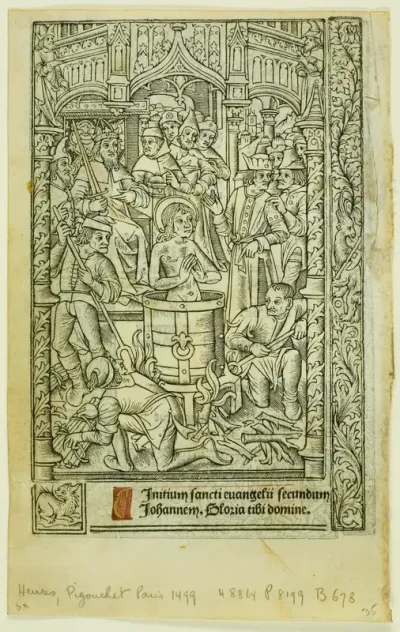 Initium sancti euangelii secundum
Johannem. Gloria tibi domine.
Heures, Pigouchet Paris 1499 H 8864 P 8199 B 678
36